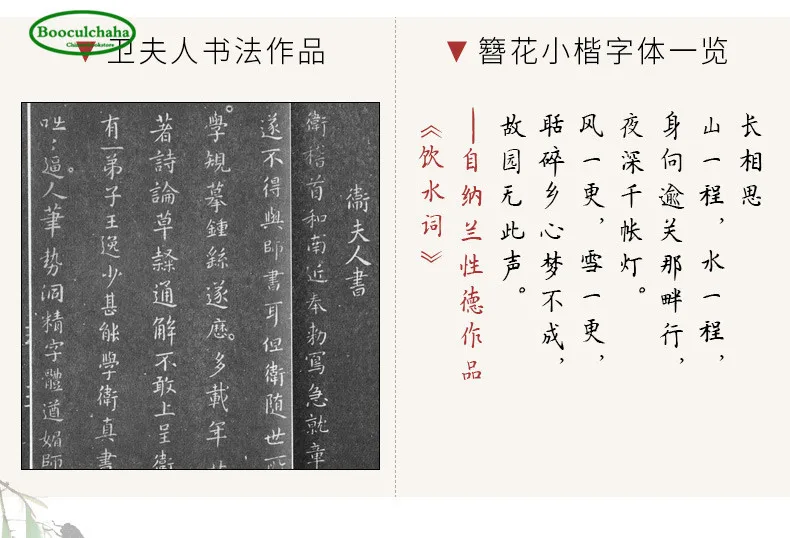 Booculchaha
卫夫人书法作品
衛夫人書
衛稽首和南近奉勅寫急就章
遂不得與師書耳但衛隨世所
學規摹鍾繇遂歷多載年廿
著詩論草隸通解不敢上呈衛
有一弟子王逸少甚能學衛真書
咄咄逼人筆勢洞精字體遒媚師
簪花小楷字体一览
长相思
山一程，水一程，
身向逾关那畔行，
夜深千帐灯。
风一更，雪一更，
聒碎乡心梦不成，
故园无此声。
—自纳兰性德作品
《饮水词》